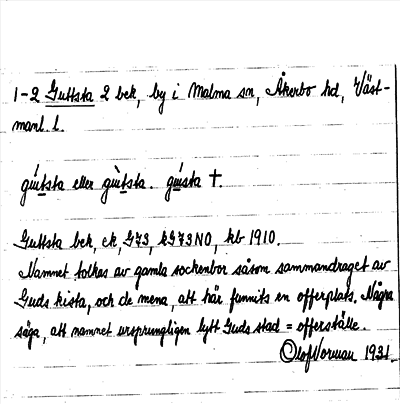 1-2 Guttsta 2 bek, by i Malma sn, Åkerbo hd, Väst-
manl. l.
gútsta eller gùtsta. gústa †.
Guttsta bek, ek, G73, kG73NO, kb 1910.
Namnet tolkas av gamla sockenbor såsom sammandraget av
Guds kista, och de mena, att här funnits en offerplats. Några
säga, att namnet ursprungligen lytt Guds stad = offerställe.
Olof Norman 1931.